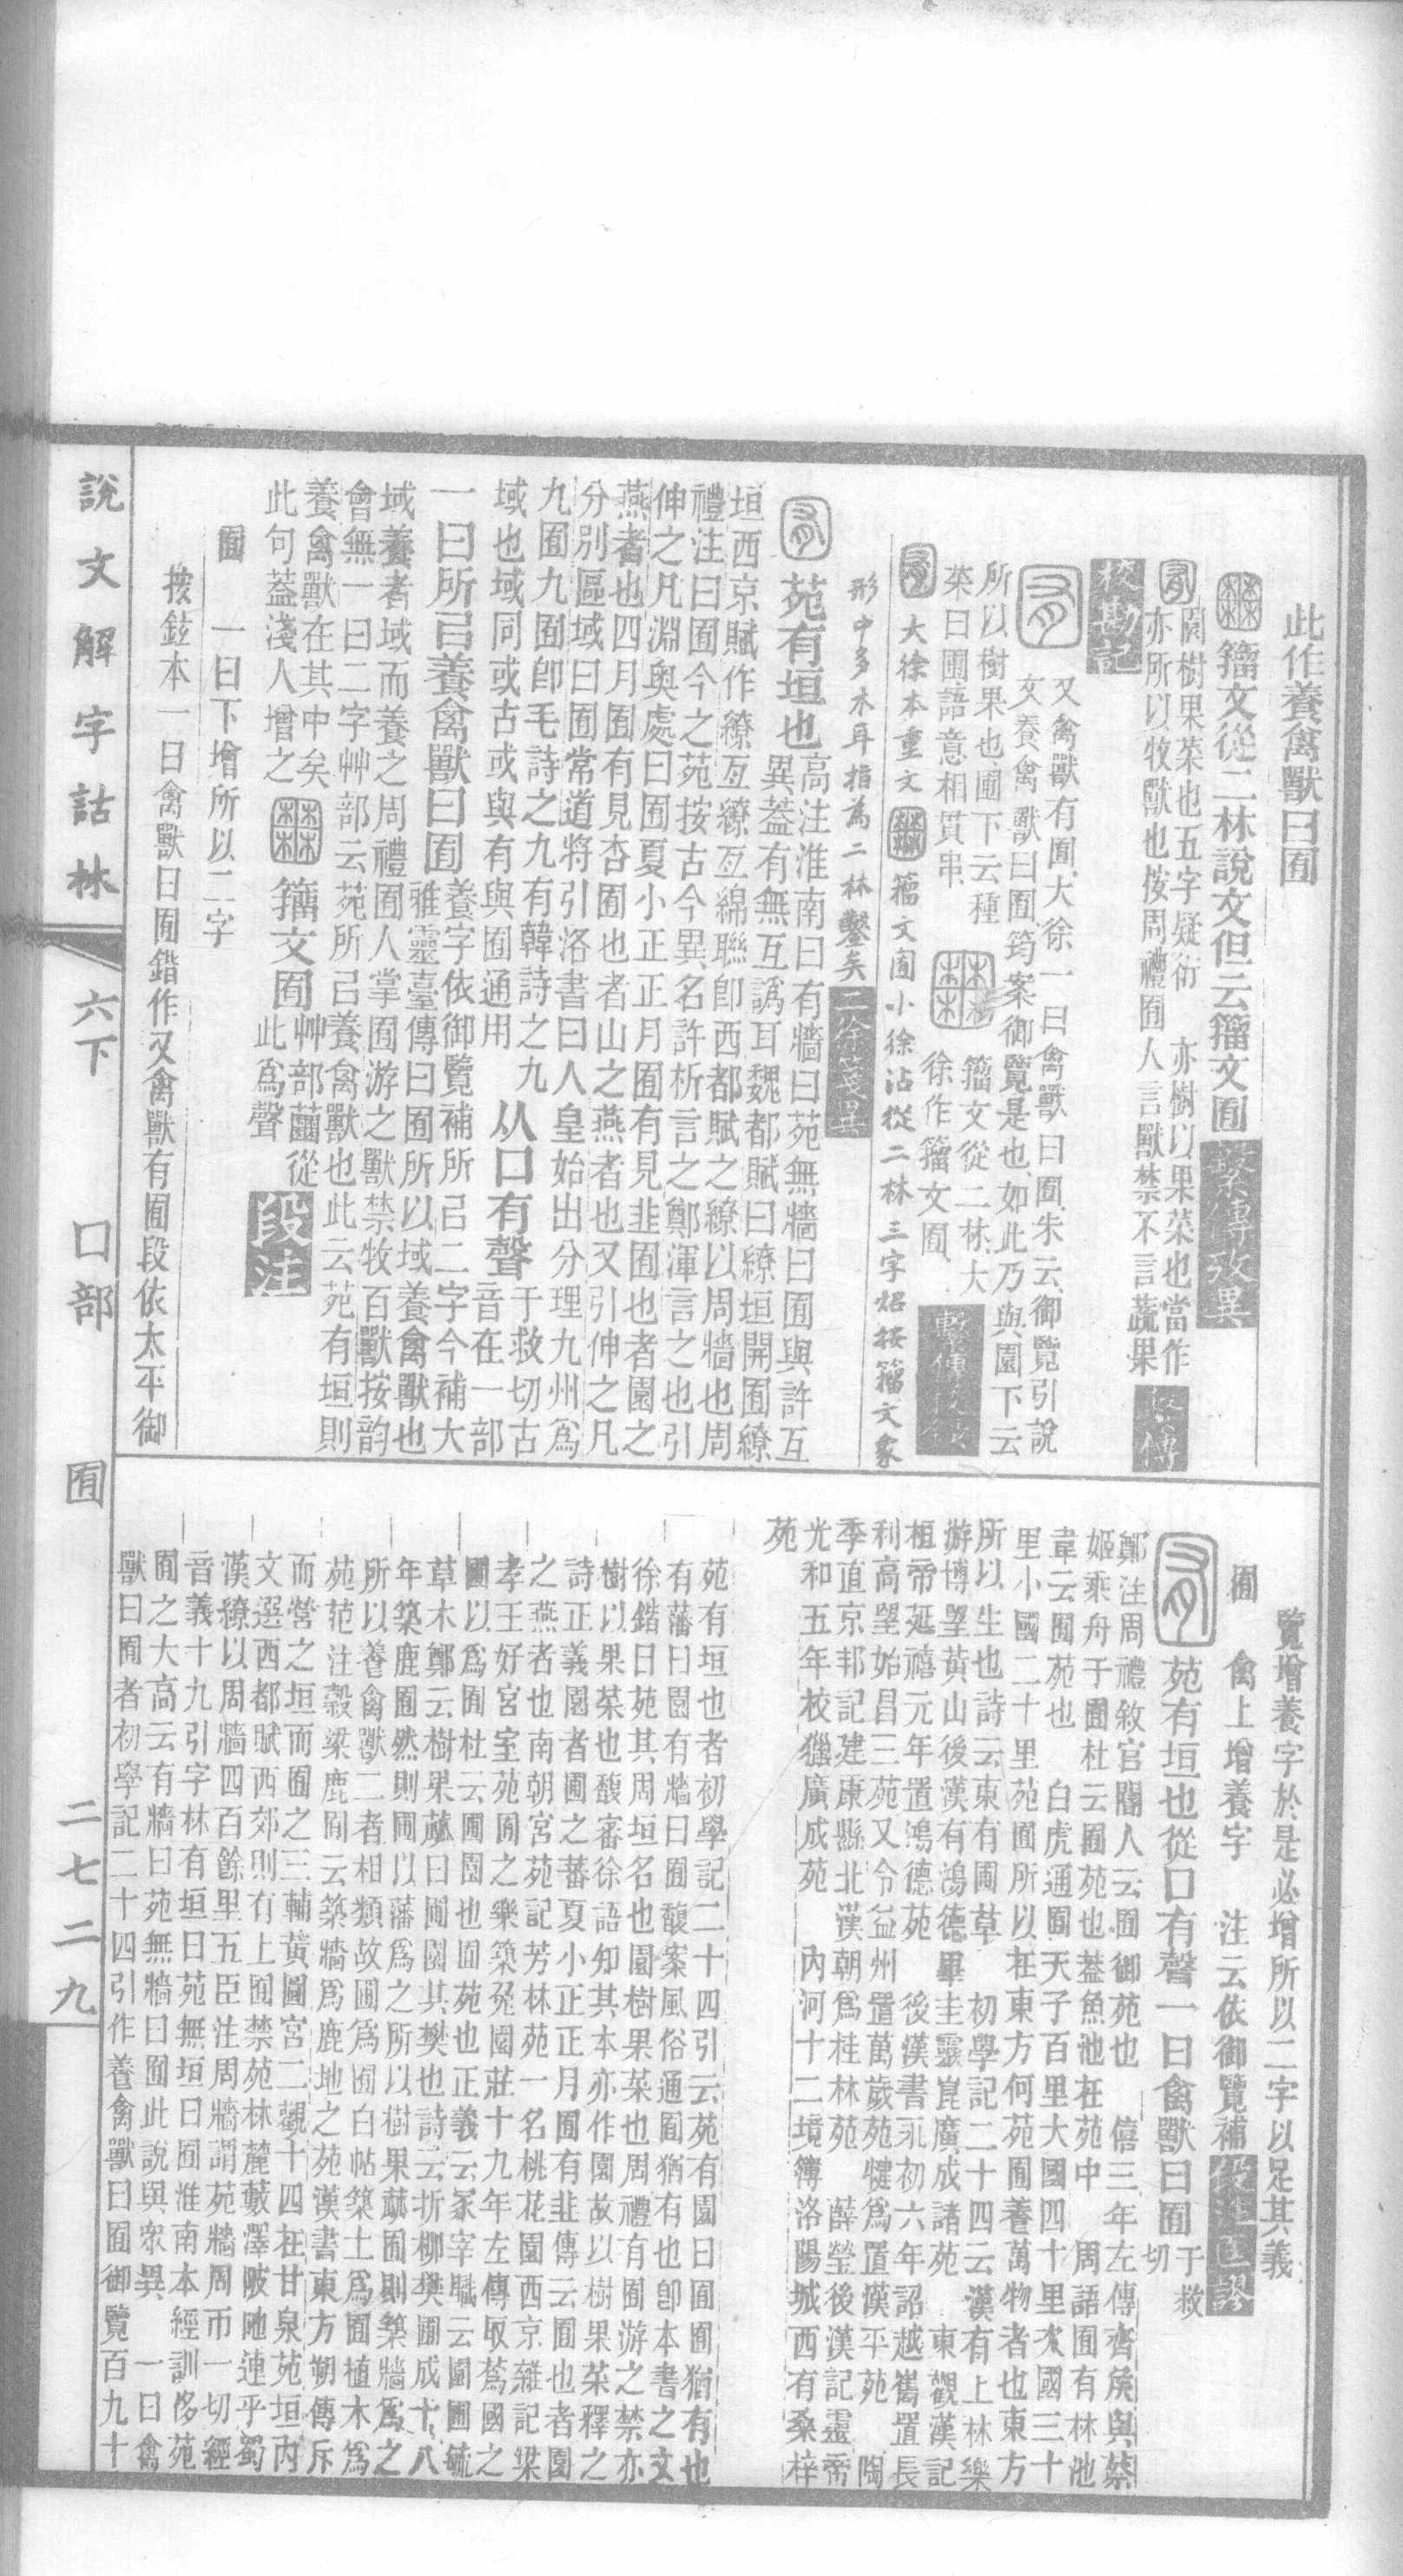 此作養禽獸曰囿
籒文從二林說文但云籒文囿 繫傳攷異
園樹果菜也五字疑衍 亦樹以果菜也當作
亦所以牧獸也按周禮囿人言獸禁不言蔬果 繫傳
校勘記
又禽獸有囿大徐一曰禽獸曰囿朱云御覽引說
文養禽獸曰囿筠案御覽是也如此乃與園下云
所以樹果也圃下云種
菜曰圃語意相貫串 籒文從二林大
徐作籒文囿
大徐本重文 籒文囿小徐沾從二林三字炤按籒文象
形中多木耳指為二林鑿矣 二徐箋異
苑有垣也 高注淮南曰有牆曰苑無牆曰囿與許互
異蓋有無互譌耳魏都賦曰繚垣開囿繚
垣西京賦作繚亙繚亙綿聯卽西都賦之繚以周牆也周
禮注曰囿今之苑按古今異名許析言之鄭渾言之也引
伸之凡淵奧處曰囿夏小正正月囿有見韭囿也者園之
燕者也四月囿有見杏囿也者山之燕者也又引伸之凡
分別區域曰囿常道將引洛書曰人皇始出分理九州爲
九囿九囿卽毛詩之九有韓詩之九
域也域同或古或與有與囿通用 从囗有聲 于救切古
音在一部
一曰所㠯養禽獸曰囿 養字依御覽補所㠯二字今補大
雅靈臺傳曰囿所以域養禽獸也
域養者域而養之周禮囿人掌囿游之獸禁牧百獸按韵
會無一曰二字艸部云苑所㠯養禽獸也此云苑有垣則
養禽獸在其中矣
此句蓋淺人增之 籒文囿 艸部䔲從
此爲聲 段注
囿 一曰下增所以二字
按鉉本一曰禽獸曰囿鍇作又禽獸有囿段依太平御
說文解字詁林 六下 囗部 囿 二七二九
覽增養字於是必增所以二字以足其義
囿 禽上增養字 注云依御覽補 段注匡謬
苑有垣也從囗有聲一曰禽獸曰囿 于救
切
鄭注周禮敘官閽人云囿御苑也 僖三年左傳齊矦與蔡
姬乘舟于囿杜云囿苑也蓋魚池在苑中 周語囿有林池
韋云囿苑也 白虎通囿天子百里大國四十里次國三十
里小國二十里苑囿所以在東方何苑囿養萬物者也東方
所以生也詩云東有圃草 初學記二十四云漢有上林樂
游博望黃山後漢有鴻德畢圭靈崑廣成諸苑 東觀漢記
桓帝延禧元年置鴻德苑 後漢書永初六年詔越巂置長
利高望始昌三苑又令益州置萬歲苑犍爲置漢平苑 陶
季直京邦記建康縣北漢朝爲桂林苑 薛瑩後漢記靈帝
光和五年校獵廣成苑 內河十二境簿洛陽城西有桑梓
苑
苑有垣也者初學記二十四引云苑有園曰囿囿猶有也
有藩曰園有牆曰囿馥案風俗通囿猶有也卽本書之文
徐鍇曰苑其周垣名也園樹果菜也周禮有囿游之禁亦
樹以果菜也馥審徐語知其本亦作園故以樹果菜釋之
詩正義園者圃之蕃夏小正正月囿有韭傳云囿也者園
之燕者也南朝宮苑記芳林苑一名桃花園西京雜記梁
孝王好宮室苑囿之樂築兔園莊十九年左傳取蔿國之
圃以爲囿杜云圃園也囿苑也正義云冢宰職云園圃毓
草木鄭云樹果蓏曰圃園其樊也詩云折柳樊圃成十八
年築鹿囿然則圃以藩爲之所以樹果蓏囿則築牆爲之
所以養禽獸二者相類故圃爲囿白帖築土爲囿植木爲
苑范注穀梁鹿囿云築牆爲鹿地之苑漢書東方朔傳斥
而營之垣而囿之三輔黃圖宮二觀十四在甘泉苑垣內
文選西都賦西郊則有上囿禁苑林麓藪澤陂池連乎蜀
漢繚以周牆四百餘里五臣注周牆謂苑牆周帀一切經
音義十九引字林有垣曰苑無垣曰囿淮南本經訓侈苑
囿之大高云有牆曰苑無牆曰囿此說與衆異 一曰禽
獸曰囿者初學記二十四引作養禽獸曰囿御覽百九十